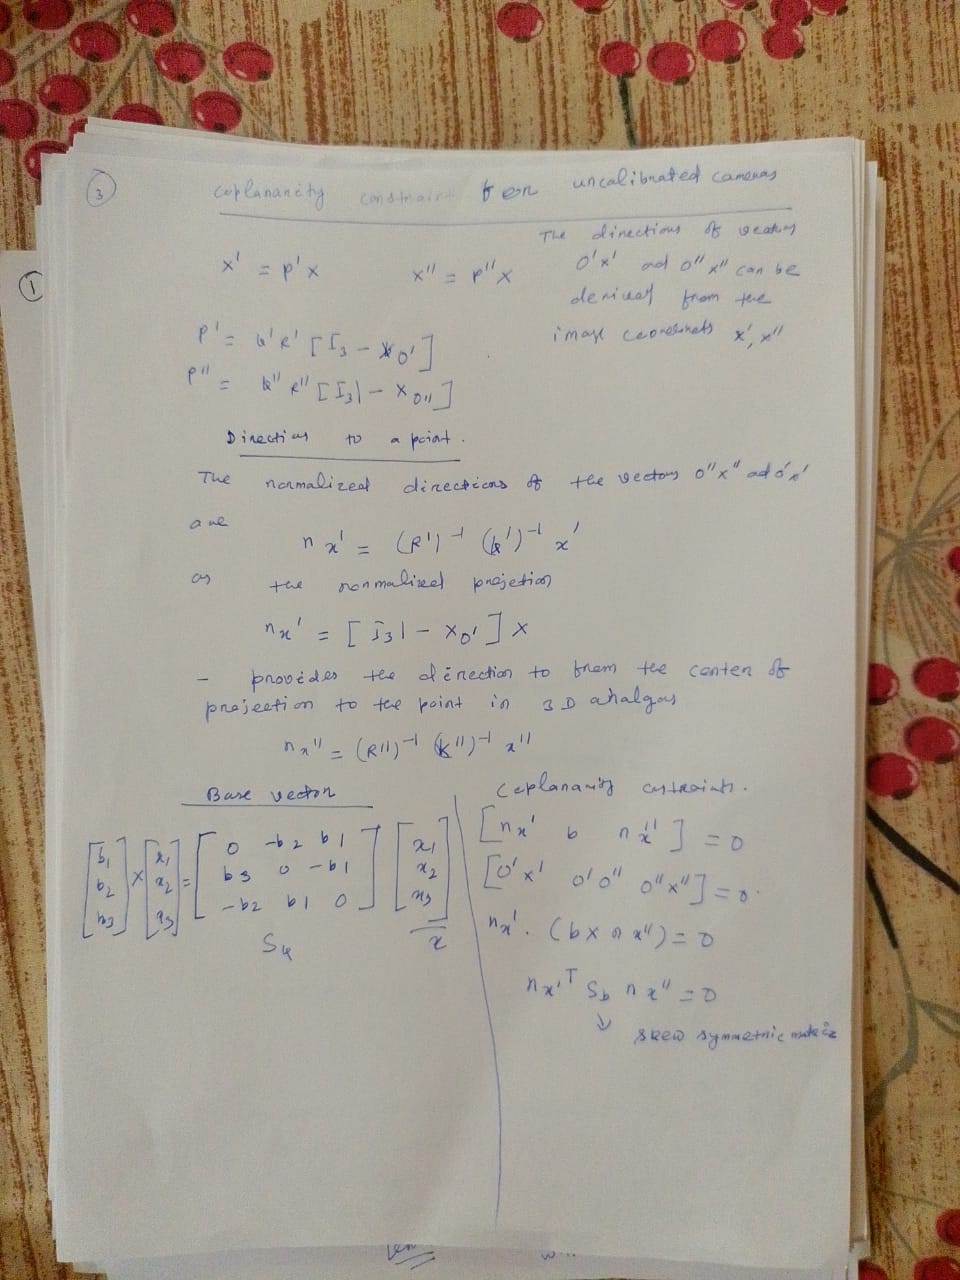 3
coplanarity constraint for uncalibrated cameras
x' = P'X x'' = P''X
The directions of vectors
O'x' ad O''x'' can be
derived from the
image coordinats x', x''
P' = k'R' [I3 - X0']
P'' = k'' R'' [I3| - X0'']
Directions to a point.
The normalized directions of the vectors O''x'' ad o'x'
are
nx' = (R')-1 (k')-1 x'
as the normalized projection
nx' = [I3| - X0'] X
- provides the direction to from the center of
projection to the point in 3D analgas
nx'' = (R'')-1 (k'')-1 x''
Base vector
[b1 b2 b3] × [x1 x2 x3] = [0 -b2 b1
b3 0 -b1
-b2 b1 0] [x1 x2 x3]
x
Coplanarity
[nx' b nx''] = 0
[O'x' O'O'' O''x''] = 0.
nx'. (b× nx'') = 0
nx'T Sb nx'' = 0
↓
skew symmetric
1